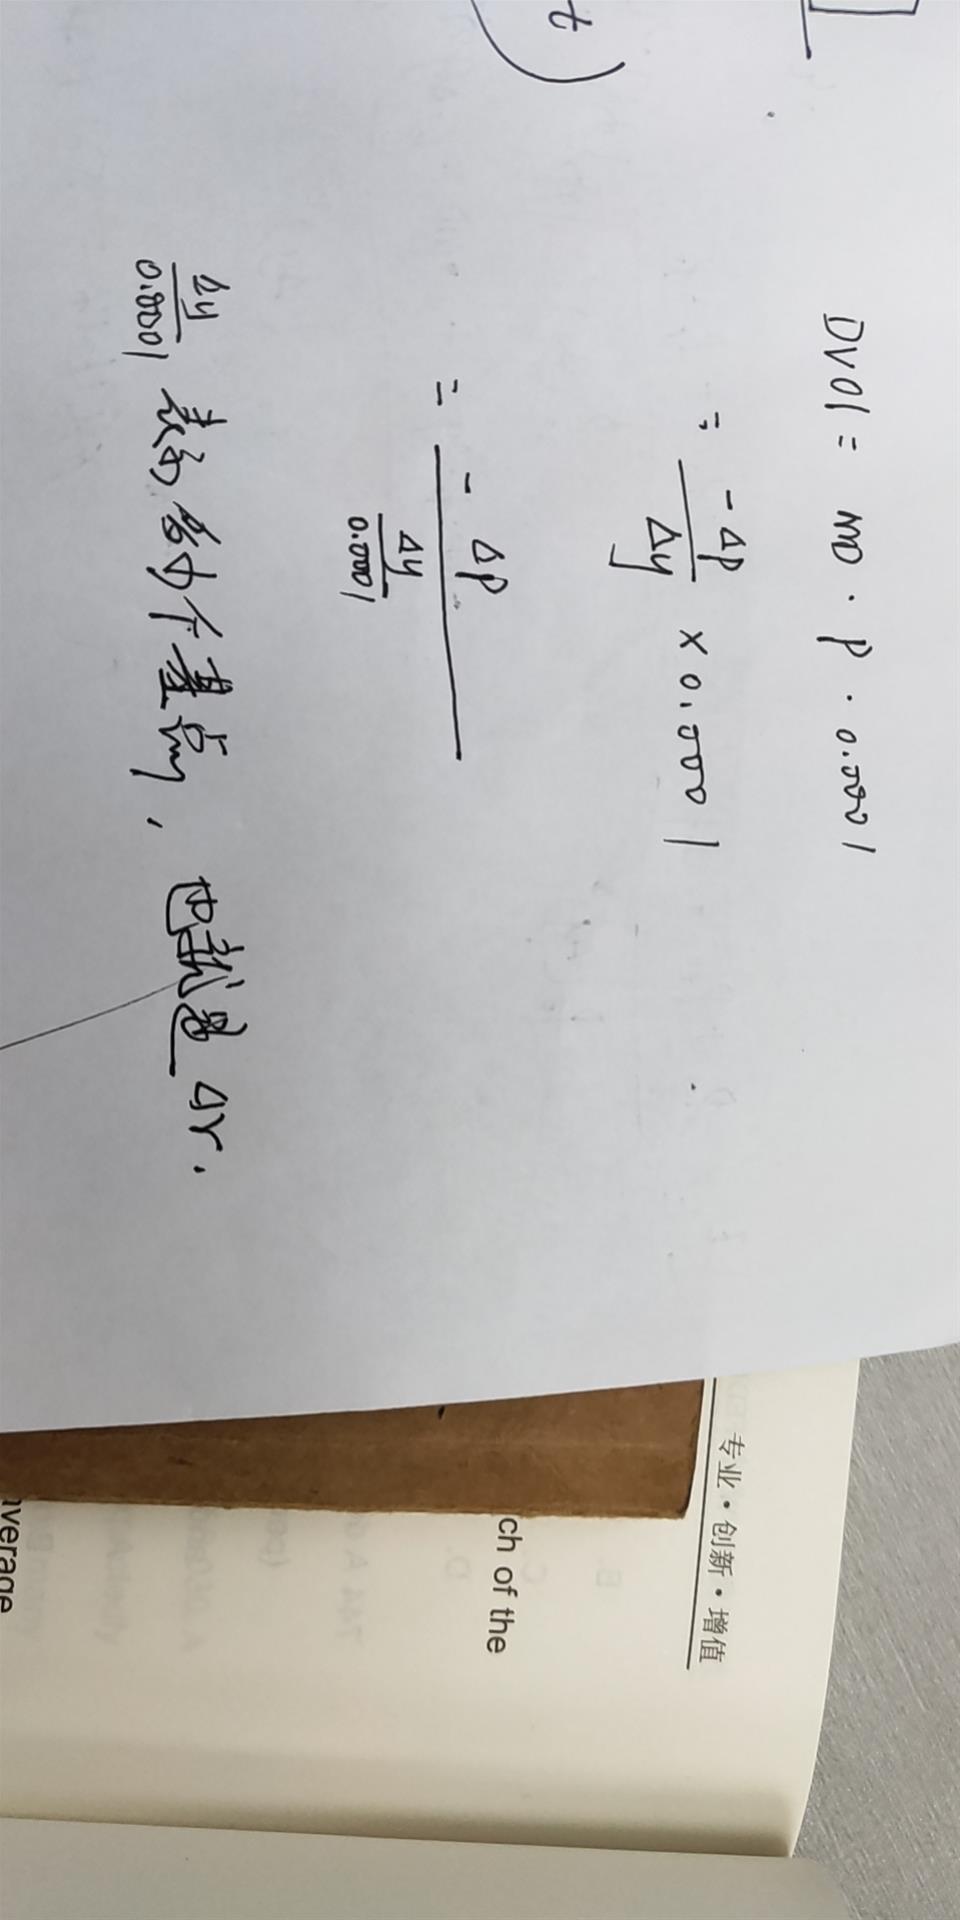 t
DV01 = MD · P · 0.0001
= -ΔP/Δy × 0.0001
= -ΔP/(Δy/0.0001)
Δy/0.0001 表示多少个基点, 也就是 Δr.
专业·创新·增值
ch of the
average